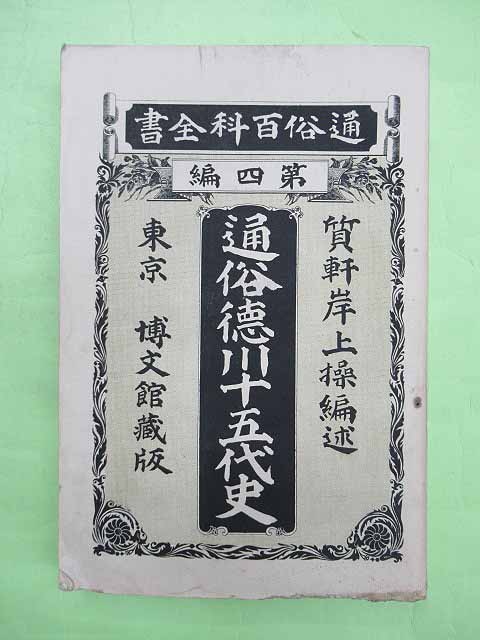 通俗百科全書
第四編
質軒岸上操編述
通俗德川十五代史
東京 博文館藏版